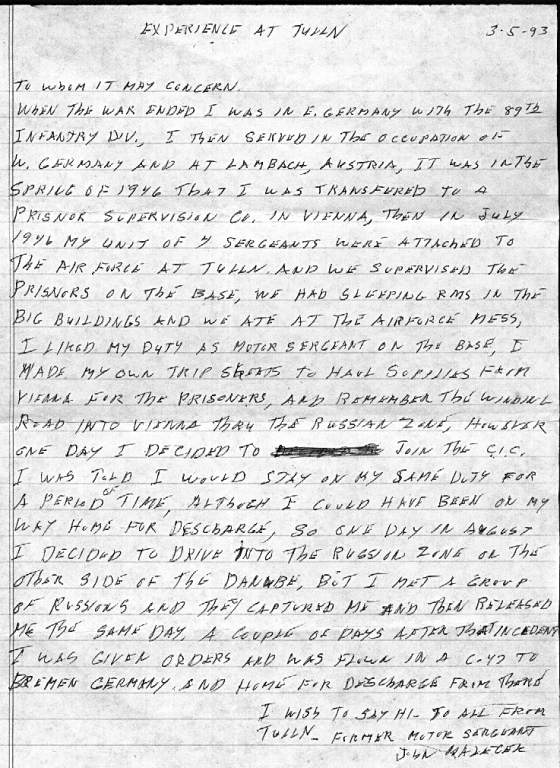 EXPERIENCE AT TULLN 3-5-93
TO WHOM IT MAY CONCERN.
WHEN THE WAR ENDED I WAS IN E. GERMANY WITH THE 89TH
INFANTRY DIV., I THEN SERVED IN THE OCCUPATION OF
W. GERMANY AND AT LAMBACH, AUSTRIA, IT WAS IN THE
SPRING OF 1946 THAT I WAS TRANSFURED TO A
PRISNOR SUPERVISION CO. IN VIENNA, THEN IN JULY
1946 MY UNIT OF 7 SERGEANTS WERE ATTACHED TO
THE AIR FORCE AT TULLN. AND WE SUPERVISED THE
PRISNORS ON THE BASE, WE HAD SLEEPING RMS IN THE
BIG BUILDINGS AND WE ATE AT THE AIRFORCE MESS,
I LIKED MY DUTY AS MOTOR SERGEANT ON THE BASE, I
MADE MY OWN TRIP TO HAUL SUPPLIES FROM
VIENNA FOR THE PRISONERS, AND REMEMBER THE WINDING
ROAD INTO VIENNA THRU THE RUSSIAN ZONE, HOWEVER
ONE DAY I DECIDED TO JOIN THE C.I.C.
I WAS TOLD I WOULD STAY ON MY SAME DUTY FOR
A PERIOD OF TIME, ALTHOUGH I COULD HAVE BEEN ON MY
WAY HOME FOR DESCHARGE, SO ONE DAY IN AUGUST
I DECIDED TO DRIVE INTO THE RUSSION ZONE ON THE
OTHER SIDE OF THE DANUBE, BUT I MET A GROUP
OF RUSSIONS AND THEY CAPTURED ME AND THEN RELEASED
ME THE SAME DAY. A COUPLE OF DAYS AFTER THAT INCEDENT
I WAS GIVEN ORDERS AND WAS FLOWN IN A C-47 TO
BREMEN GERMANY. AND HOME FOR DESCHARGE FROM THERE
I WISH TO SAY HI- TO ALL FROM
TULLN- FORMER MOTOR SERGEANT
JOHN